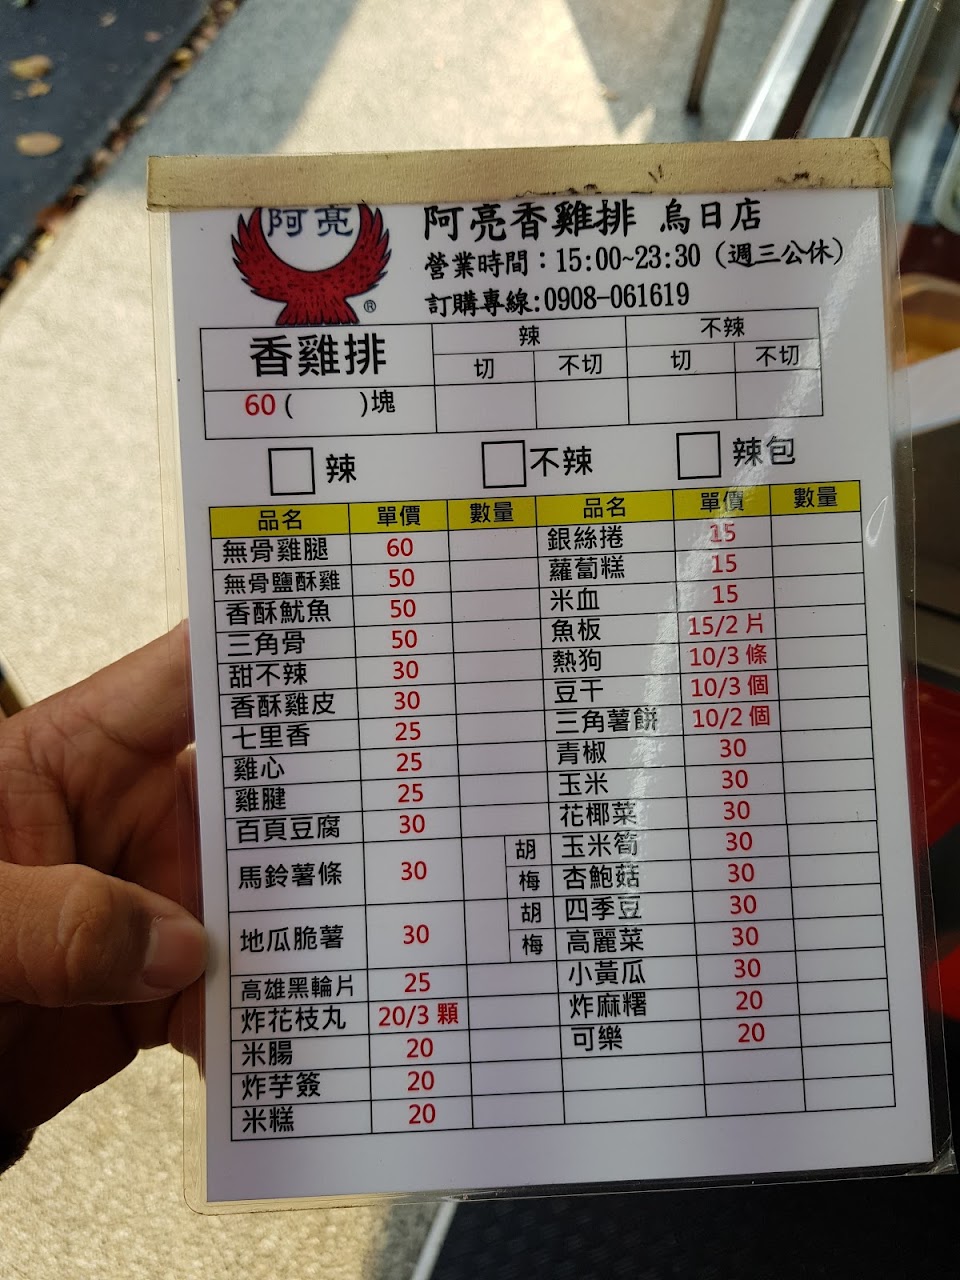 阿亮
®
阿亮香雞排 烏日店
營業時間：15:00~23:30（週三公休）
訂購專線:0908-061619
香雞排 辣 不辣
切 不切 切 不切
60 ( )塊
辣 不辣 辣包
品名 單價 數量 品名 單價 數量
無骨雞腿 60 銀絲捲 15
無骨鹽酥雞 50 蘿蔔糕 15
香酥魷魚 50 米血 15
三角骨 50 魚板 15/2 片
甜不辣 30 熱狗 10/3 條
香酥雞皮 30 豆干 10/3 個
七里香 25 三角薯餅 10/2 個
雞心 25 青椒 30
雞腱 25 玉米 30
百頁豆腐 30 花椰菜 30
馬鈴薯條 30 胡 玉米筍 30
梅 杏鮑菇 30
地瓜脆薯 30 胡 四季豆 30
梅 高麗菜 30
高雄黑輪片 25 小黃瓜 30
炸花枝丸 20/3 顆 炸麻糬 20
米腸 20 可樂 20
炸芋簽 20
米糕 20